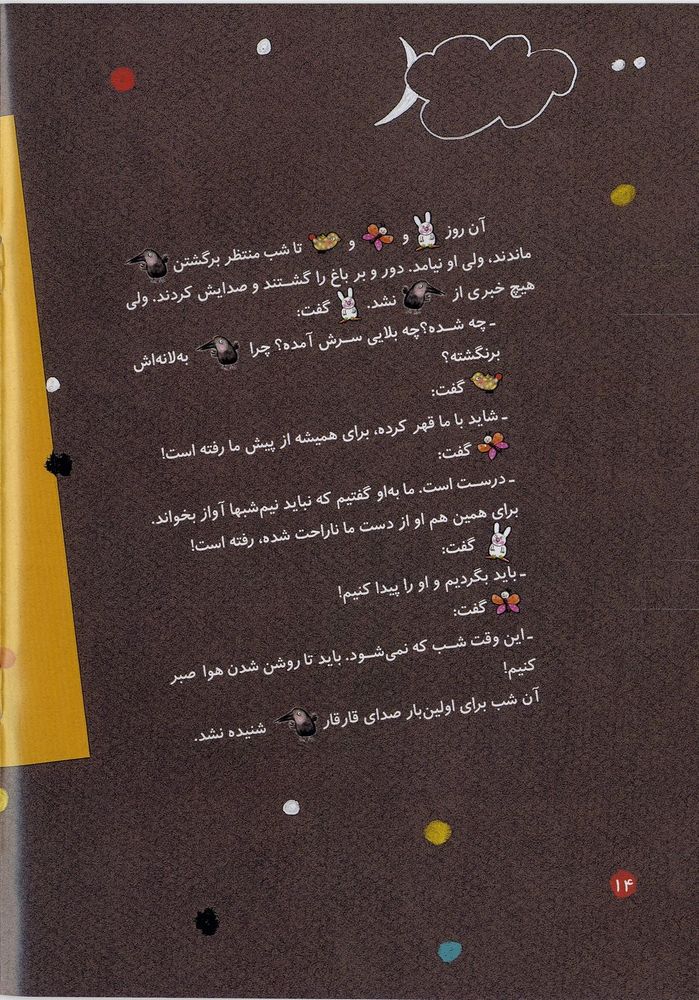 آن روز و و تا شب منتظر برگشتن
ماندند، ولی او نیامد. دور و بر باغ را گشتند و صدایش کردند. ولی
هیچ خبری از نشد. گفت:
ـ چه شده؟چه بلایی سرش آمده؟ چرا به‌لانه‌اش
برنگشته؟
گفت:
ـ شاید با ما قهر کرده، برای همیشه از پیش ما رفته است!
گفت:
ـ درست است. ما به‌او گفتیم که نباید نیم‌شبها آواز بخواند.
برای همین هم او از دست ما ناراحت شده، رفته است!
گفت:
ـ باید بگردیم و او را پیدا کنیم!
گفت:
ـ این وقت شب که نمی‌شود. باید تا روشن شدن هوا صبر
کنیم!
آن شب برای اولین‌بار صدای قارقار شنیده نشد.
۱۴